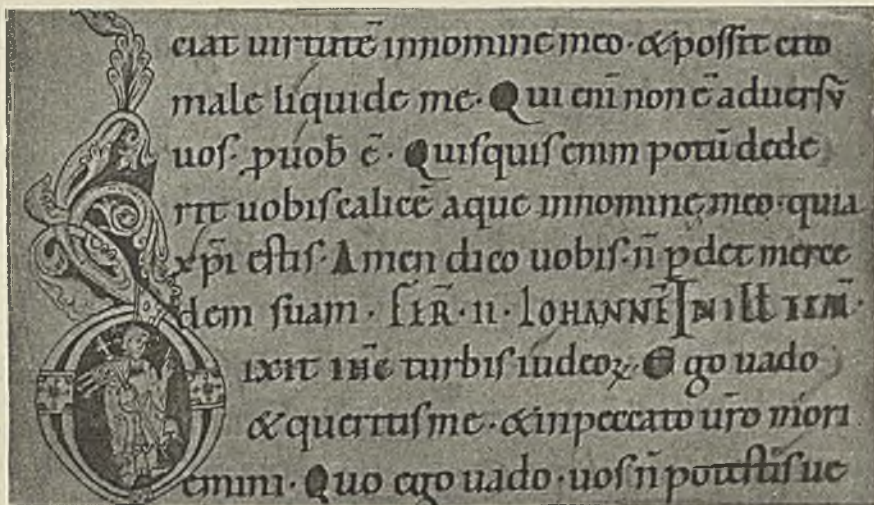 ciat uirtutē innomine meo · & possit cito
male liqui de me · Qui enī non ē aduersū
uos · ꝓuob̄ ē · Quisquis enim potū dede
rit uobis calicē aque innomine meo · quia
xp̄i estis · Amen dico uobis · n̄ ꝑdet merce
dem suam · FER̄ · II · IOHANNĒ IN ILL TEM̄ ·
ixit ihc̄ turbis iudeoꝝ · Ego uado
& queritis me · & inpeccato ur̄o mori
emini · Quo ego uado · uos n̄ potestis ue